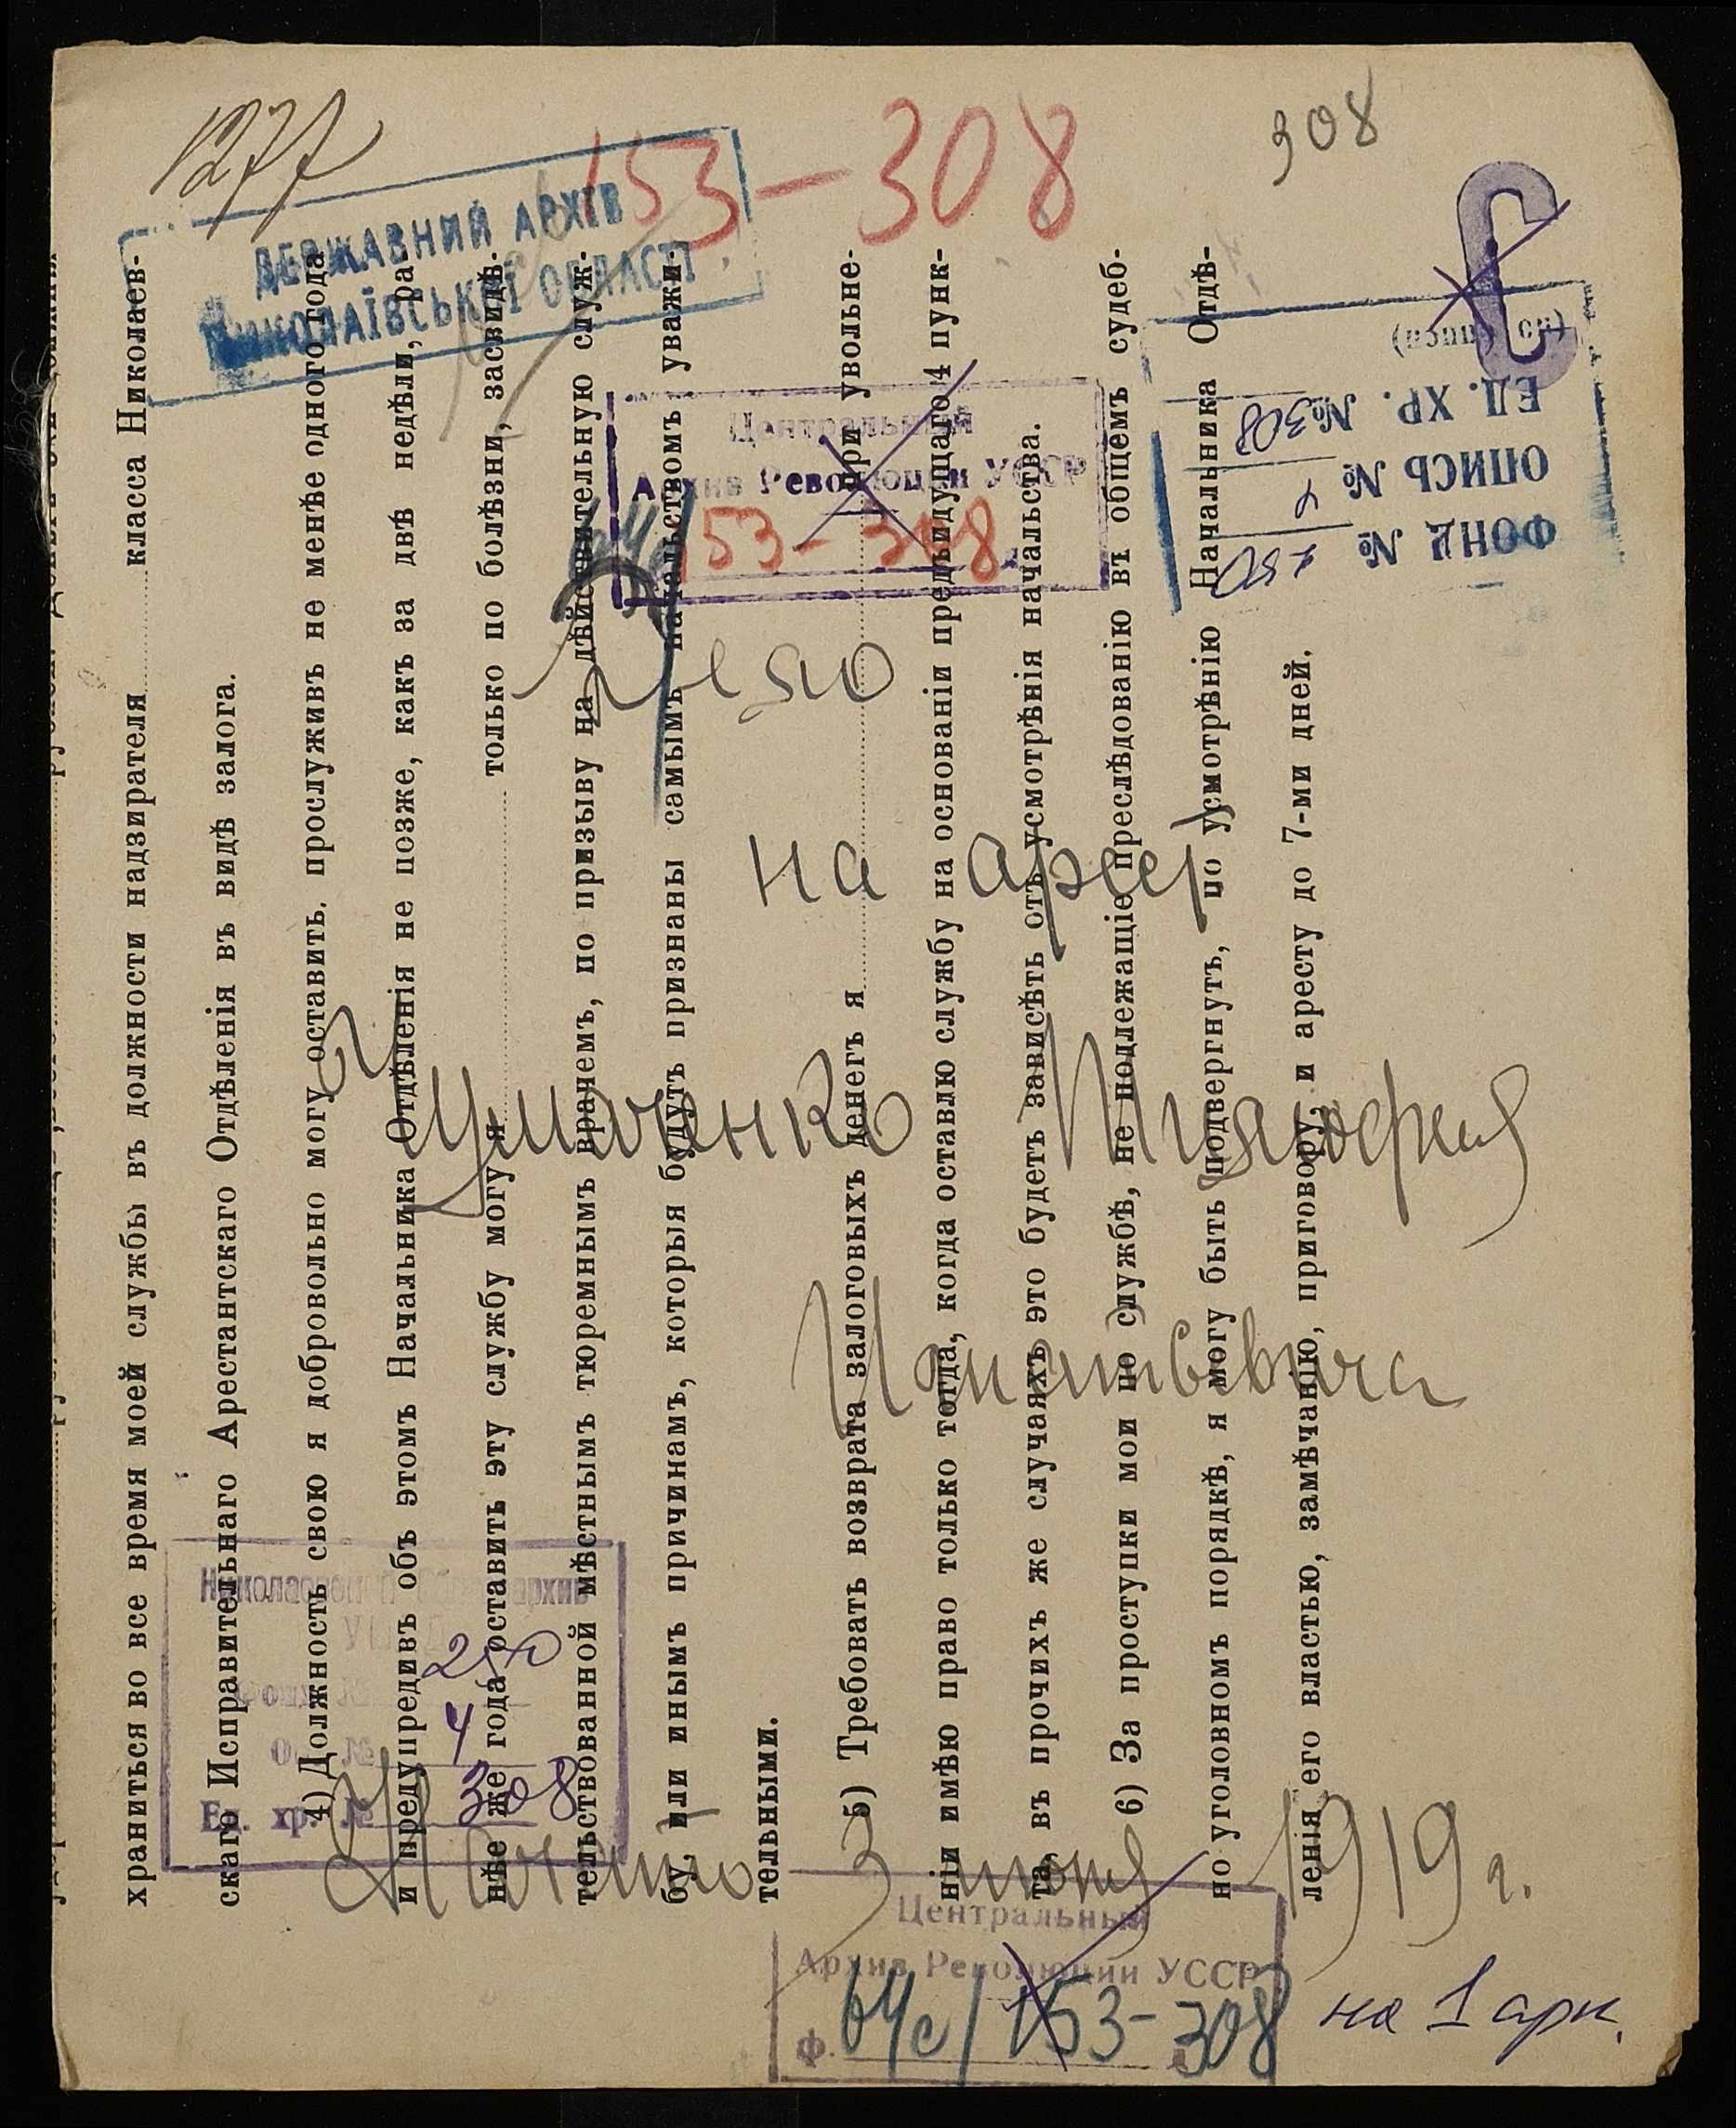 1277
153-308
308
ДЕРЖАВНИЙ АРХІВ
МИКОЛАЇВСЬКОЇ ОБЛАСТІ
ФОНД № 250
ОПИСЬ № 4
ЕД. ХР. № 308
Центральный
Архив Революции УССР
153-308
Дело
на арест
Игнатьевича
Начато 3 июня 1919 г.
Николаевский архив
250
4
Ед. хр. № 308
Центральный
Архив Революции УССР
ф. 64с/153-308
на 1 арк.
храниться во все время моей службы въ должности надзирателя класса Николаев-
скаго Исправительнаго Арестантскаго Отдѣленія въ видѣ залога.
4) Должность свою я добровольно могу оставить, прослуживъ не менѣе одного года
и предупредивъ объ этомъ Начальника Отдѣленія не позже, какъ за двѣ недѣли, ра-
нѣе же года оставить эту службу могу я только по болѣзни, засвидѣ-
тельствованной мѣстнымъ тюремнымъ врачемъ, по призыву на дѣйствительную служ-
бу, или инымъ причинамъ, которыя будутъ признаны самымъ начальствомъ уважи-
тельными.
5) Требовать возврата залоговыхъ денегъ я при увольне-
ніи имѣю право только тогда, когда оставлю службу на основаніи предъидущаго 4 пунк-
та, въ прочихъ же случаяхъ это будетъ зависѣть отъ усмотрѣнія начальства.
6) За проступки мои по службѣ, не подлежащіе преслѣдованію въ общемъ судеб-
но уголовномъ порядкѣ, я могу быть подвергнутъ, по усмотрѣнію Начальника Отдѣ-
ленія его властью, замѣчанію, приговору, и аресту до 7-ми дней.